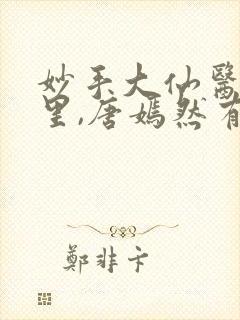 妙手大仙醫
里,唐嫣然有
鄭非卞